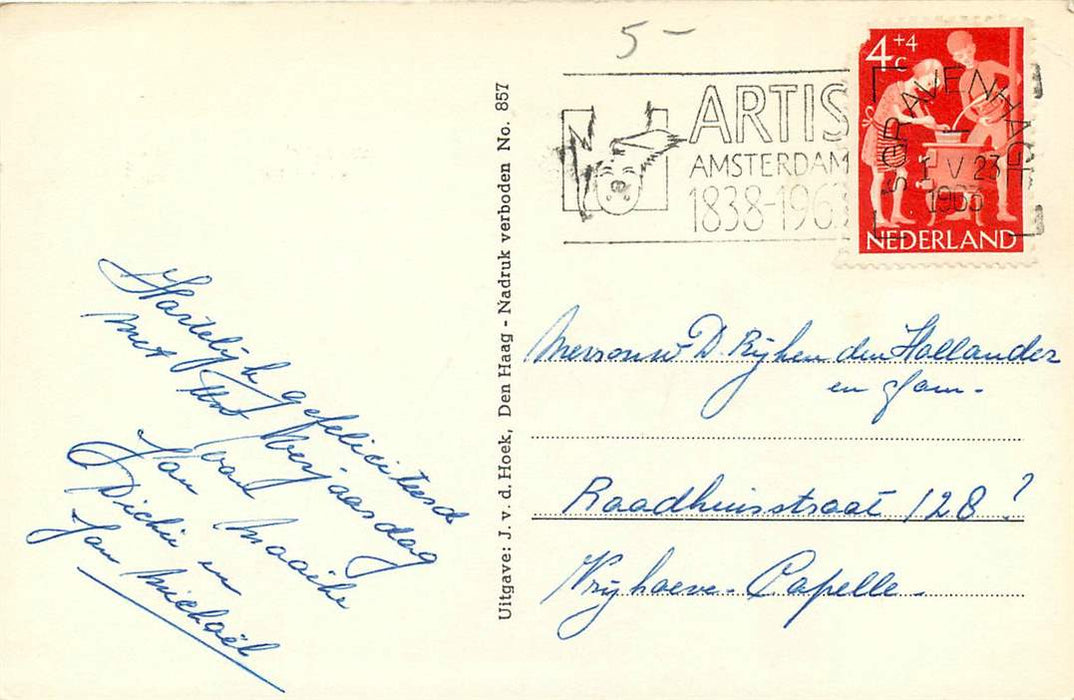 5-
ARTIS
AMSTERDAM
1838-1963
4+4
c
'SGRAVENHAGE
1 V 23
1963
NEDERLAND
Hartelijk gefeliciteerd
met Uw Verjaardag
van
Han Maaike
Dickie en
Jan Michaël
Uitgave: J. v. d. Hoek, Den Haag - Nadruk verboden No. 857
Mevrouw D. Rijken den Hollander
en fam.
Raadhuisstraat 128?
Vrijhoeve-Capelle.